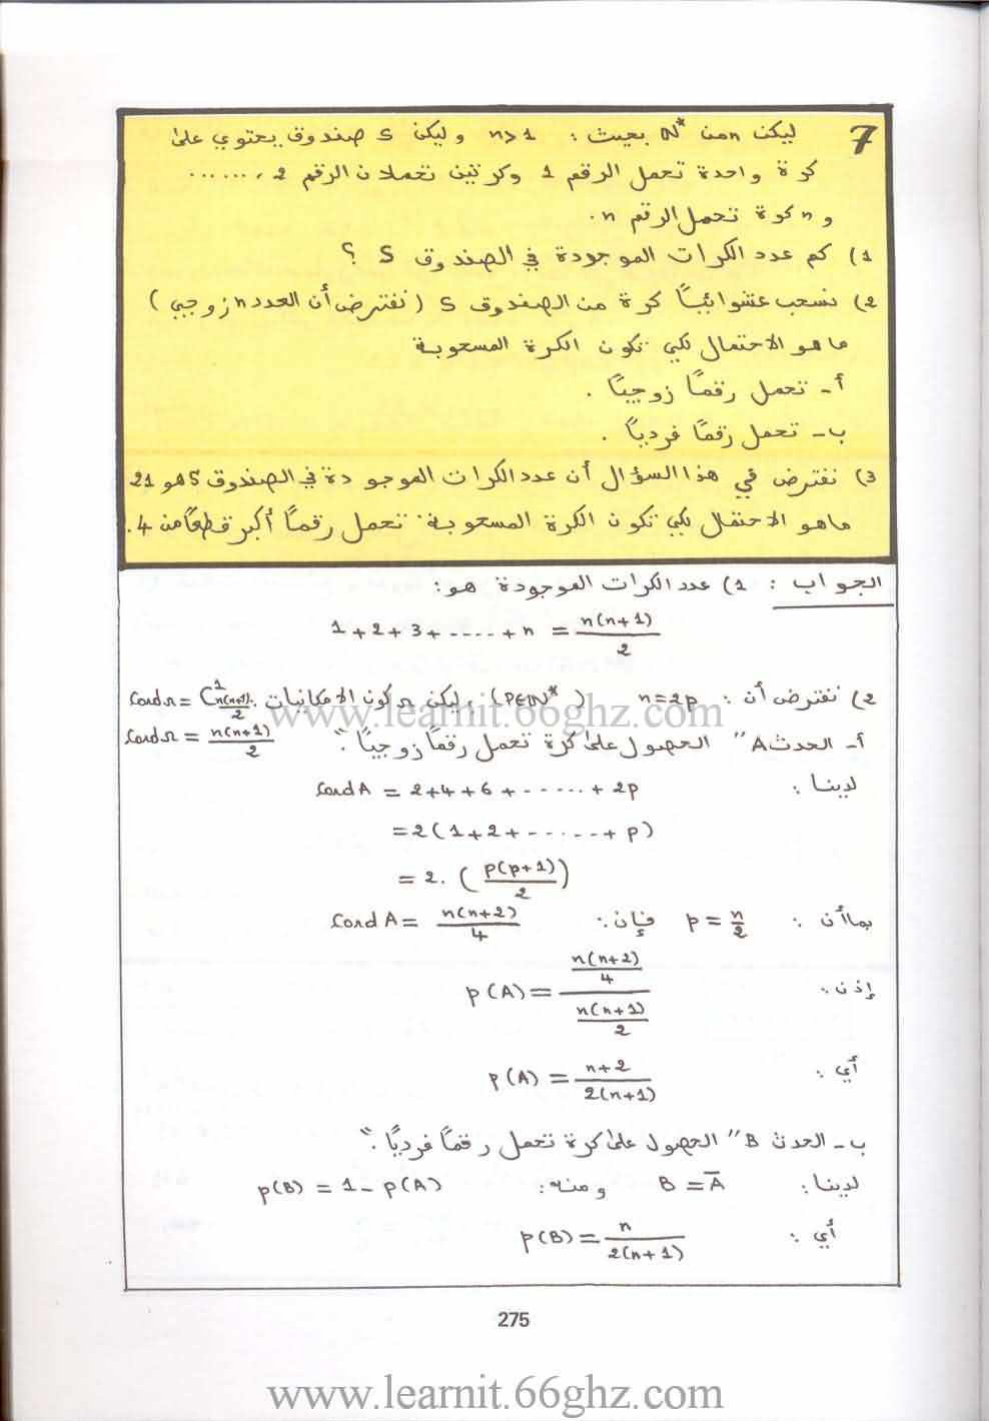 7 ليكن n من ℕ* بحيث : n>1 وليكن S صندوق يحتوي على
كرة واحدة تحمل الرقم 1 وكرتين تحملان الرقم 2 ، ......
و n كرة تحمل الرقم n.
1) كم عدد الكرات الموجودة في الصندوق S ؟
2) نسحب عشوائيًا كرة من الصندوق S (نفترض أن العدد n زوجي)
ما هو الاحتمال لكي تكون الكرة المسحوبة
أ- تحمل رقمًا زوجيًا .
ب- تحمل رقمًا فرديًا .
3) نفترض في هذا السؤال أن عدد الكرات الموجودة في الصندوق S هو 21
ماهو الاحتمال لكي تكون الكرة المسحوبة تحمل رقمًا أكبر قطعًا من 4.
الجواب : 1) عدد الكرات الموجودة هو:
1+2+3+.....+n = n(n+1)/2
2) نفترض أن : n=2p (p∈ℕ*) ، ليكن Ω كون الإمكانيات . Card Ω = C¹n(n+1)/2
أ- الحدث A "الحصول على كرة تحمل رقمًا زوجيًا". Card Ω = n(n+1)/2
لدينا : Card A = 2+4+6+......+2p
=2(1+2+......+p)
= 2.(p(p+1)/2)
بما أن : p = n/2 فإن: Card A = n(n+2)/4
إذن: p(A) = (n(n+2)/4)/(n(n+1)/2)
أي : p(A) = n+2/2(n+1)
ب- الحدث B "الحصول على كرة تحمل رقمًا فرديًا".
لدينا: B = A̅ ومنه: p(B) = 1 - p(A)
أي : p(B) = n/2(n+1)
275
www.learnit.66ghz.com
www.learnit.66ghz.com